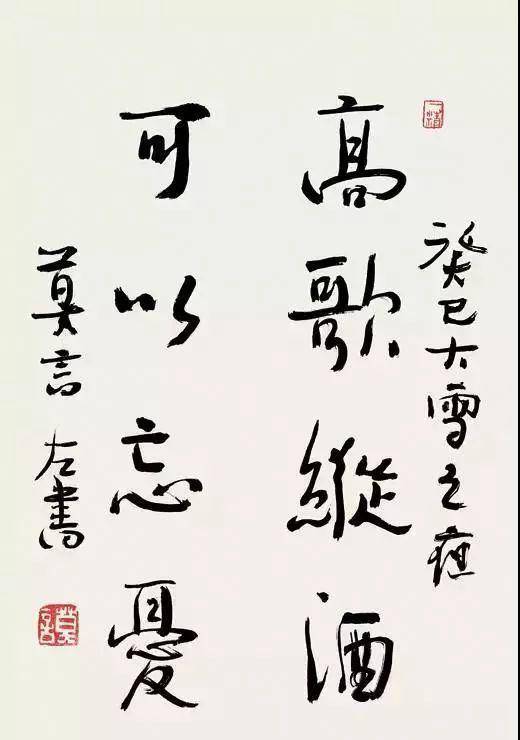 癸巳大雪之夜
高歌縱酒
可以忘憂
莫言左書
莫言